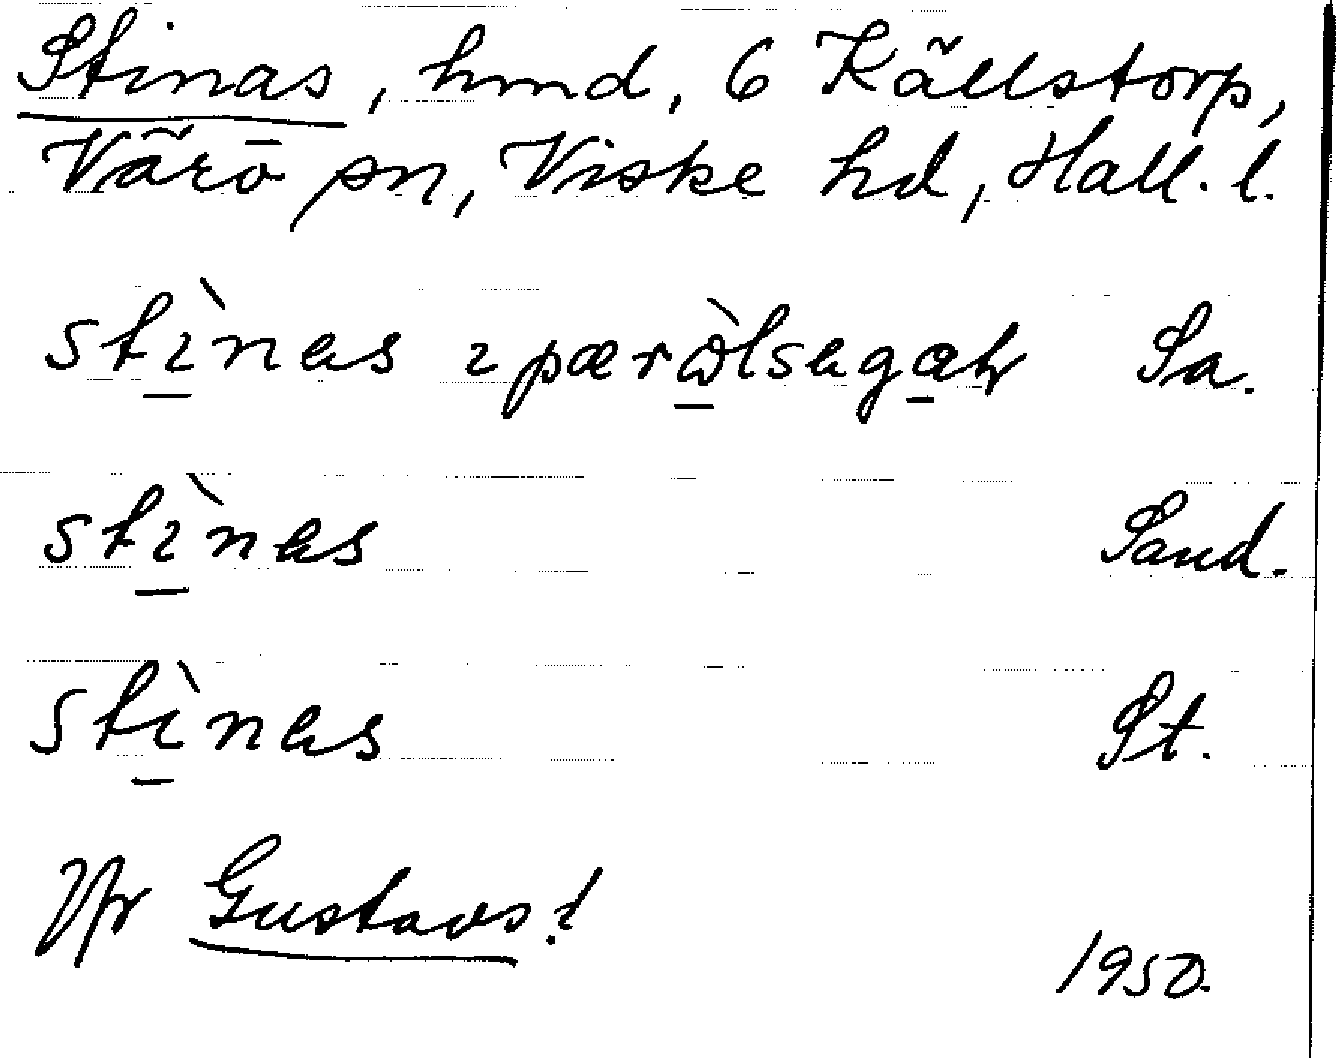 Stinas, hmd, 6 Källstorp,
Värö sn, Viske hd, Hall. l.
stı̀nas ı pærɷ̀lsagatʀ Sa.
stı̀nas Sand.
stı̀nas St.
Jfr Gustavs!
1950.